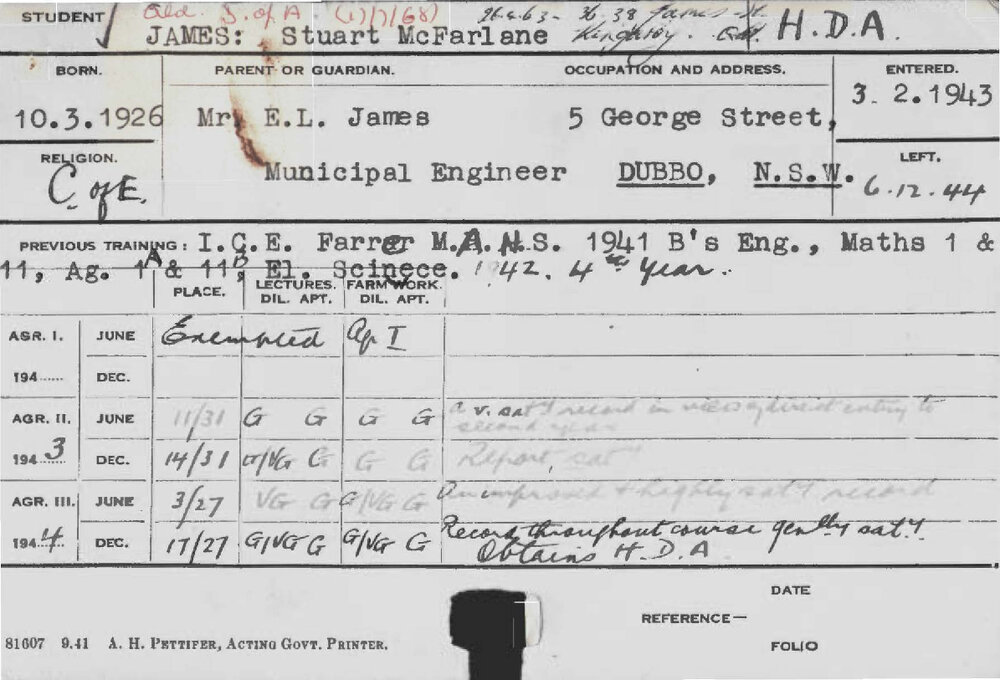 STUDENT Qld. S. of A. (17/7/68) 26.4.63 - 36, 38 James St.
JAMES: Stuart McFarlane Kingaroy. Qd. H.D.A.
BORN. PARENT OR GUARDIAN. OCCUPATION AND ADDRESS. ENTERED.
10.3.1926 Mr E.L. James 5 George Street, 3. 2. 1943
RELIGION. LEFT.
C. of E. Municipal Engineer DUBBO, N.S.W. 6.12.44
PREVIOUS TRAINING: I.C.E. Farrer M.A.H.S. 1941 B's Eng., Maths 1 &
11, Ag. 1A & 11B, El. Scinece. 1942. 4th Year.
PLACE. LECTURES. DIL. APT. FARM WORK. DIL. APT.
AGR. I. JUNE Exempted Ag I
194...... DEC.
AGR. II. JUNE 11/31 G G G G A v. sat'y record in view of direct entry to second year
194 3 DEC. 14/31 G/VG G G G Report, sat'y
AGR. III. JUNE 3/27 VG G G/VG G An improved + highly sat'y record
194 4. DEC. 17/27 G/VG G G/VG G Record throughout course gen'lly sat'y.
Obtains H.D.A
DATE
REFERENCE—
FOLIO
81607 9.41 A. H. PETTIFER, ACTING GOVT. PRINTER.